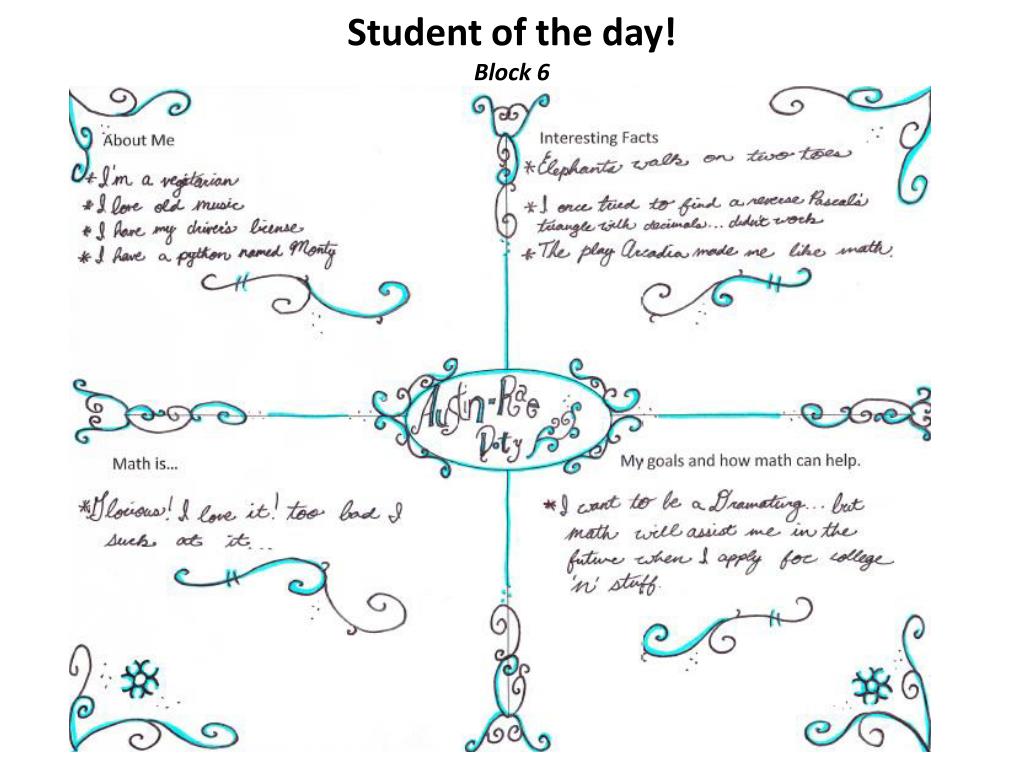 Student of the day!
Block 6
About Me
*I'm a vegitarian
*I love old music
*I have my driver's license
*I have a python named Monty
Interesting Facts
*Elephants walk on two toes
*I once tried to find a reverse Pascal's
triangle with decimals... didn't work
*The play Arcadia made me like math.
Austin-Rae
Doty
Math is...
*Glorious! I love it! too bad I
suck at it...
My goals and how math can help.
*I want to be a Dramaturg... but
math will assist me in the
future when I apply for college
'n' stuff.